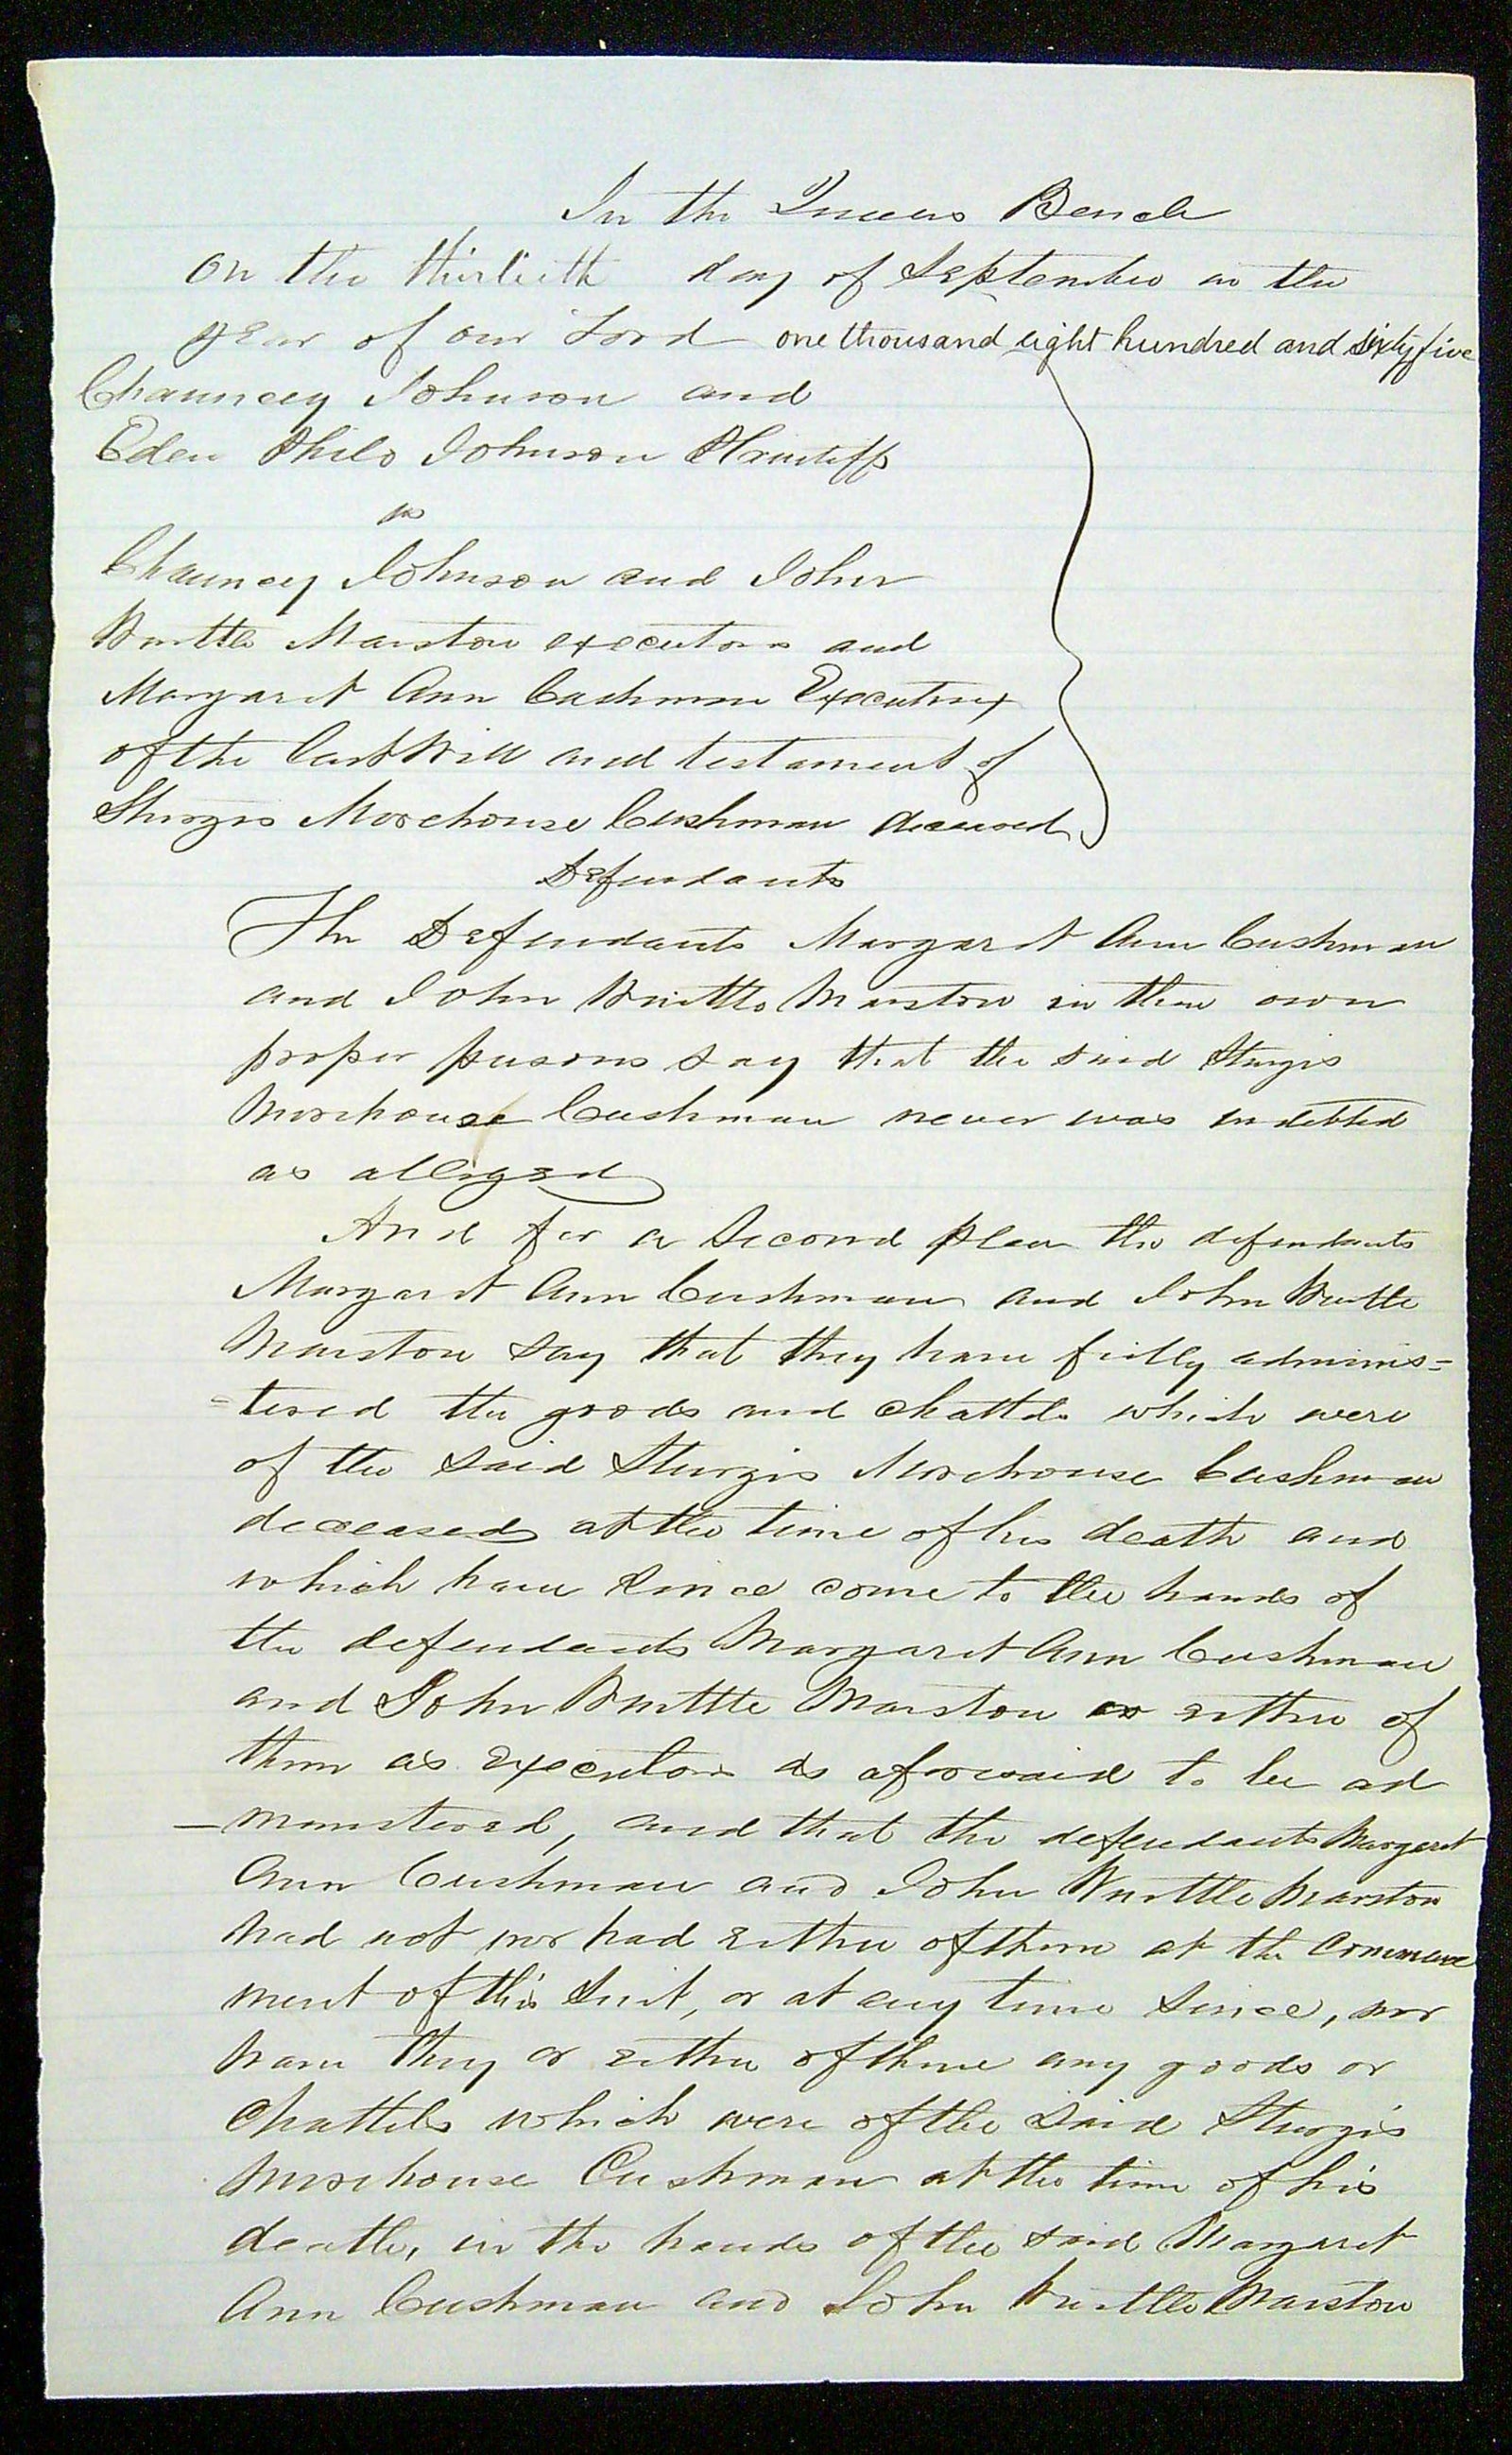 In the Queens Bench
On the thirtieth day of September in the
year of our Lord one thousand eight hundred and sixty five
Chauncey Johnson and
Eden Philo Johnson Plaintiffs
vs
Chauncey Johnson and John
Wurttle Marston executors and
Margaret Ann Cushman Executrix
of the last Will and testament of
Sturgis Morehouse Cushman deceased
Defendants
The Defendants Margaret Ann Cushman
and John Wurttle Marston in their own
proper persons say that the said Sturgis
Morehouse Cushman never was indebted
as alleged
And for a Second plea the defendants
Margaret Ann Cushman and John Wurttle
Marston say that they have fully adminis=
=tered the goods and chattels which were
of the said Sturgis Morehouse Cushman
deceased at the time of his death and
which have since come to the hands of
the defendants Margaret Ann Cushman
and John Wurttle Marston or either of
them as executors as aforesaid to be ad
-ministered, and that the defendants Margaret
Ann Cushman and John Wurttle Marston
had not nor had either of them at the commence
ment of this Suit, or at any time since, nor
have they or either of them any goods or
chattels which were of the said Sturgis
Morehouse Cushman at the time of his
death, in the hands of the said Margaret
Ann Cushman and John Wurttle Marston